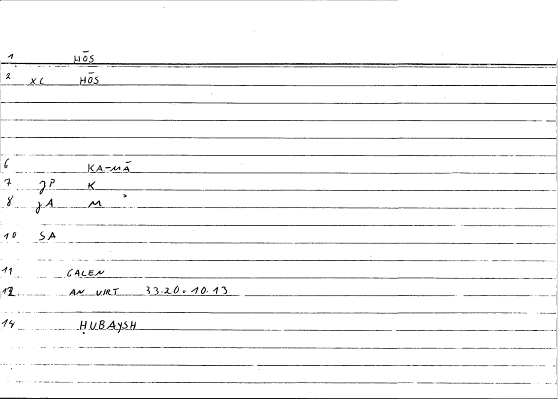 1 HŌS
2 XC HŌS
6 KA-MĀ
7 JP K
8 JA M
10 SA
11 GALEN
12 AN VIRT 33.20 = 10.13
14 ḤUBAYSH